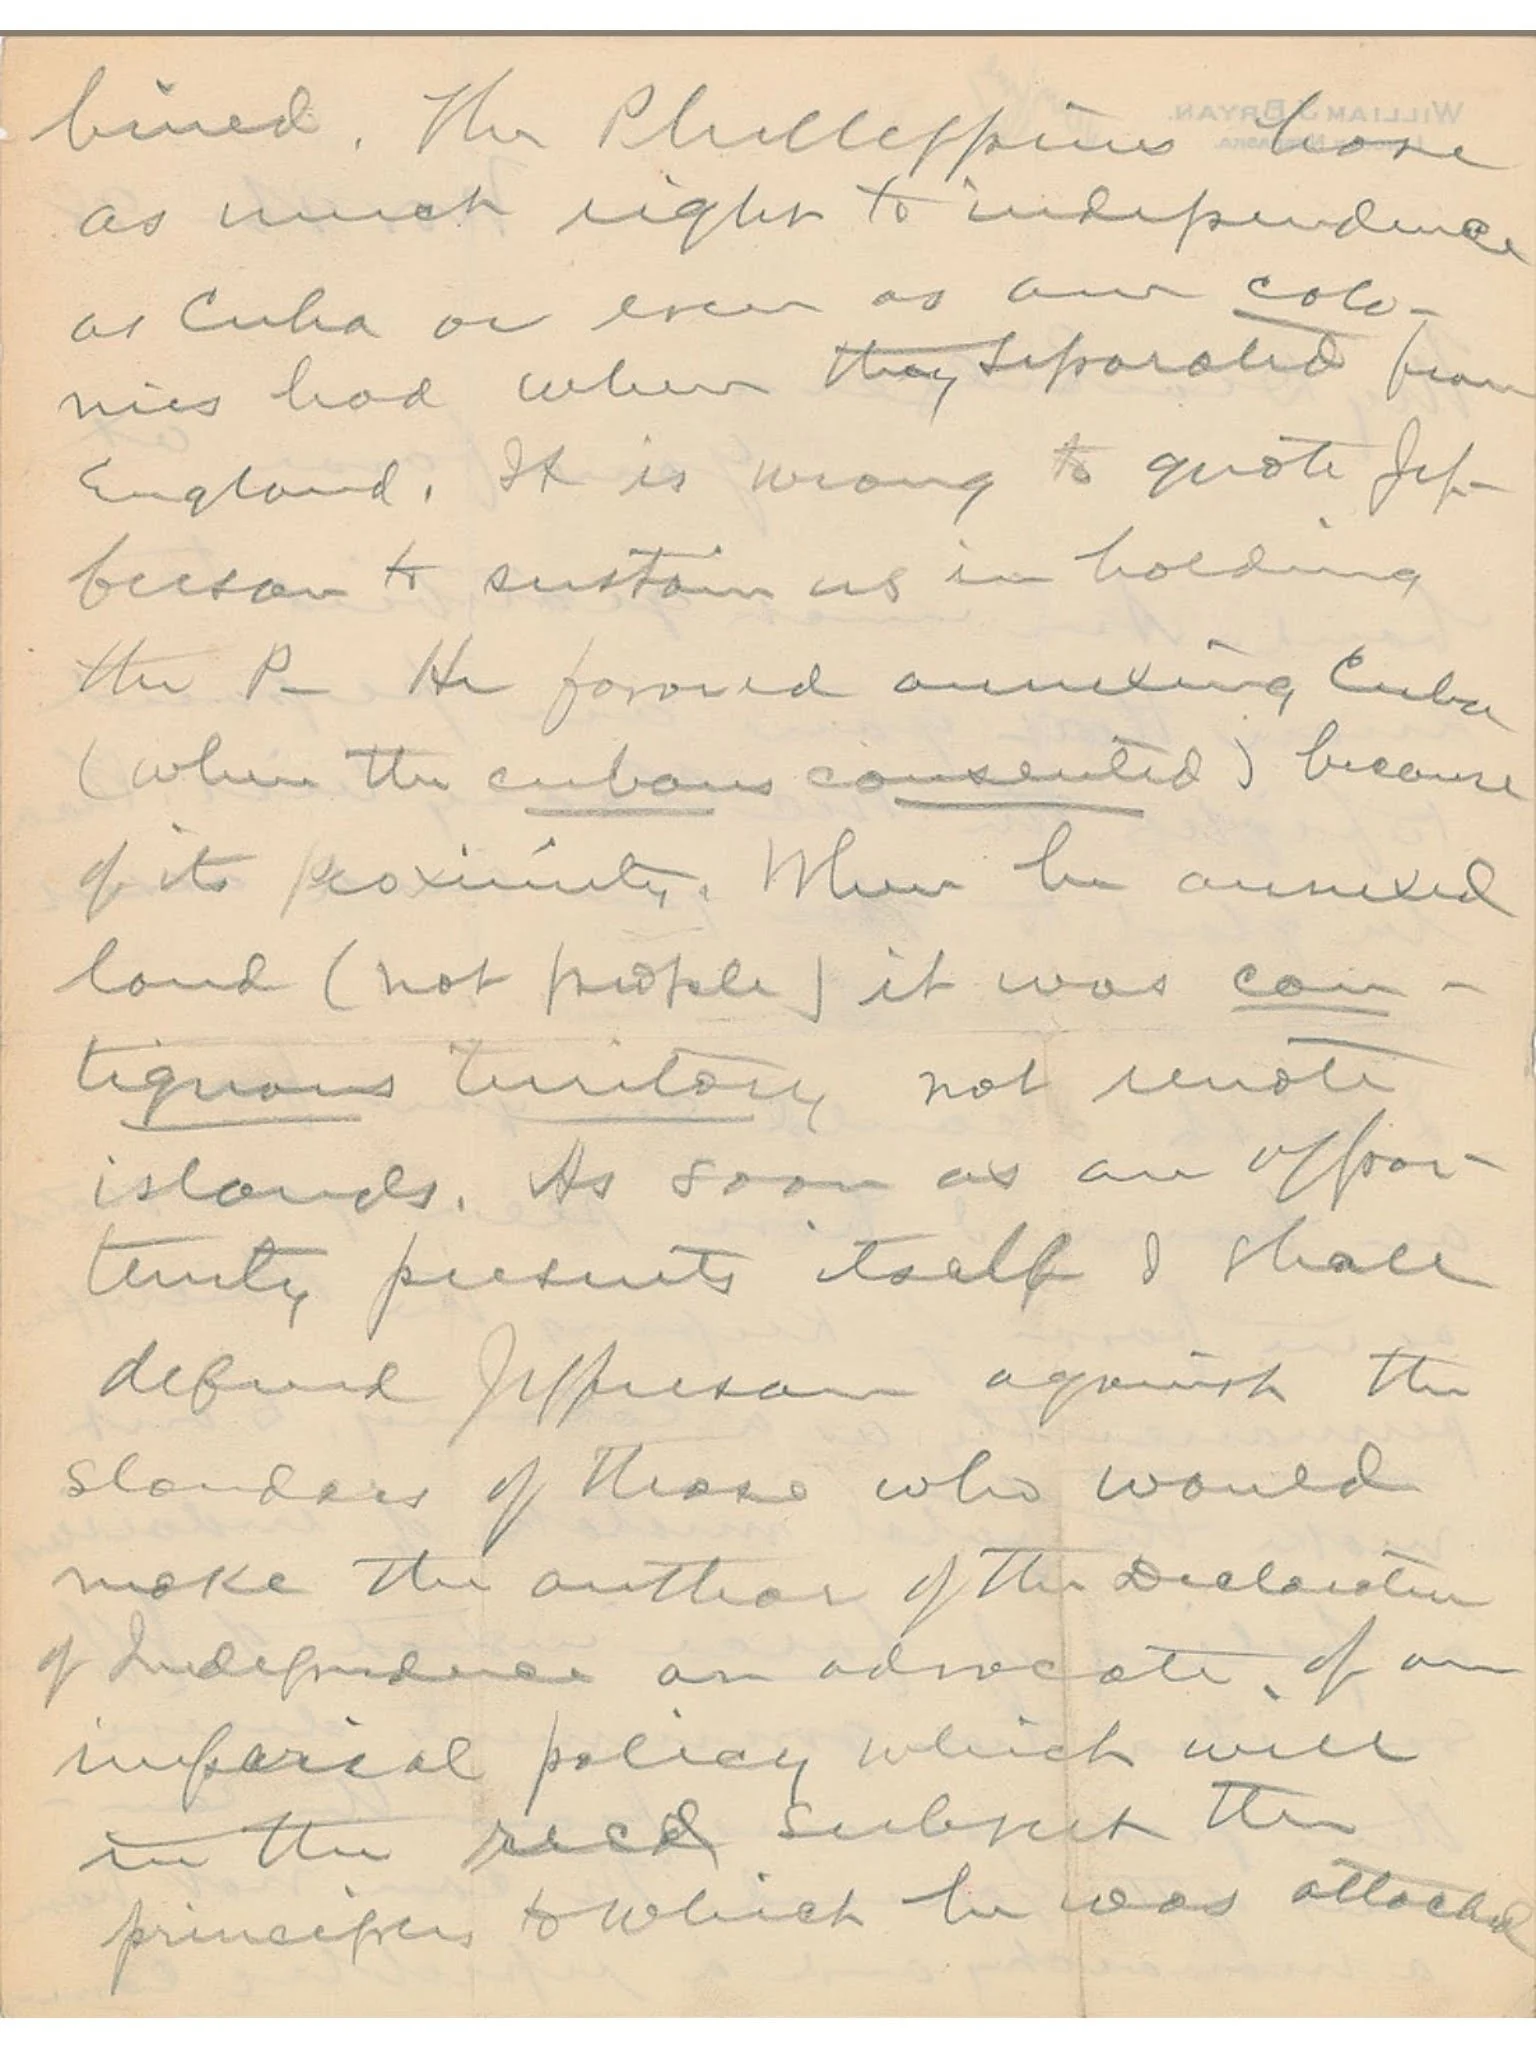 WILLIAM J. BRYAN.
bined. The Phillippines have
as much right to independence
as Cuba or even as our colo-
nies had when they separated from
England. It is wrong to quote Jef-
ferson to sustain us in holding
the P— He favored annexing Cuba
(when the cubans consented) because
of its proximity. When he annexed
land (not people) it was con-
tiguous territory not remote
islands. As soon as an oppor-
tunity presents itself I shall
defend Jefferson against the
slanders of those who would
make the author of the Declaration
of Independence an advocate of an
imperial policy which will
in the subject the
principles to which he was attached